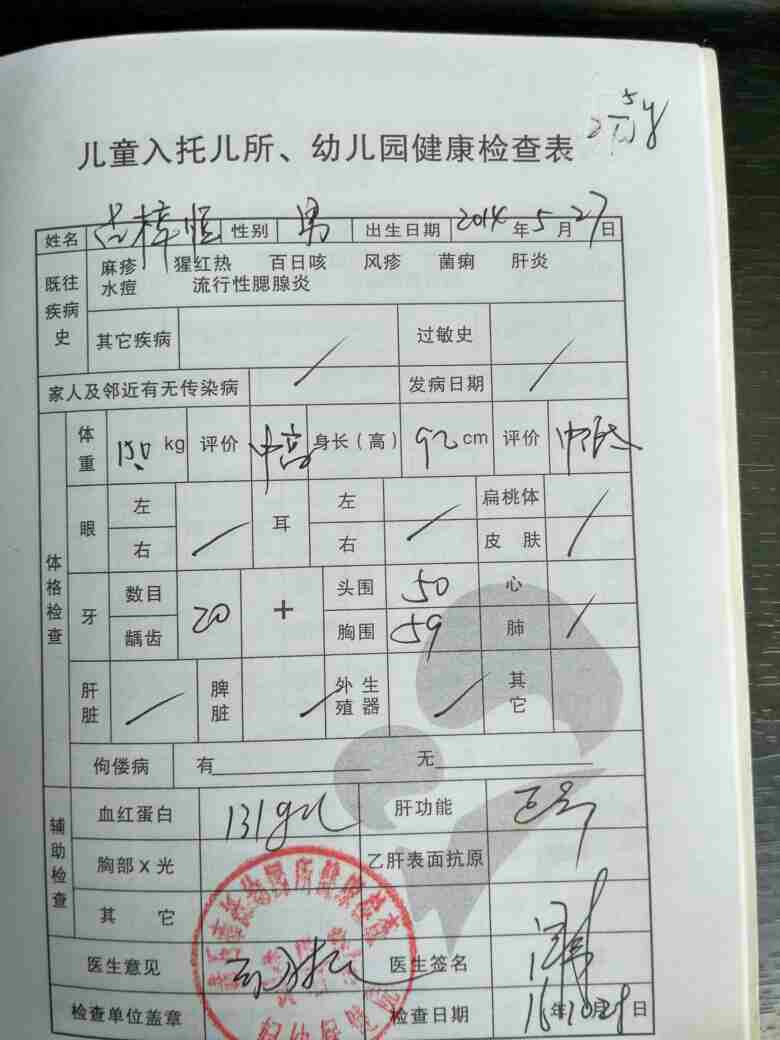 儿童入托儿所、幼儿园健康检查表
姓名 性别 男 出生日期 2014年5月27日
既往疾病史 麻疹 猩红热 百日咳 风疹 菌痢 肝炎
水痘 流行性腮腺炎
其它疾病 过敏史
家人及邻近有无传染病 发病日期
体格检查
体重 kg 评价 中高 身长(高) 92cm 评价
眼 左 耳 左 扁桃体
右 右 皮肤
牙 数目 20 + 头围 50 心
龋齿 胸围 59 肺
肝脏 脾脏 外生殖器 其它
佝偻病 有 无
辅助检查
血红蛋白 131g/L 肝功能
胸部X光 乙肝表面抗原
其它
医生意见 医生签名
检查单位盖章 检查日期 16年10月28日